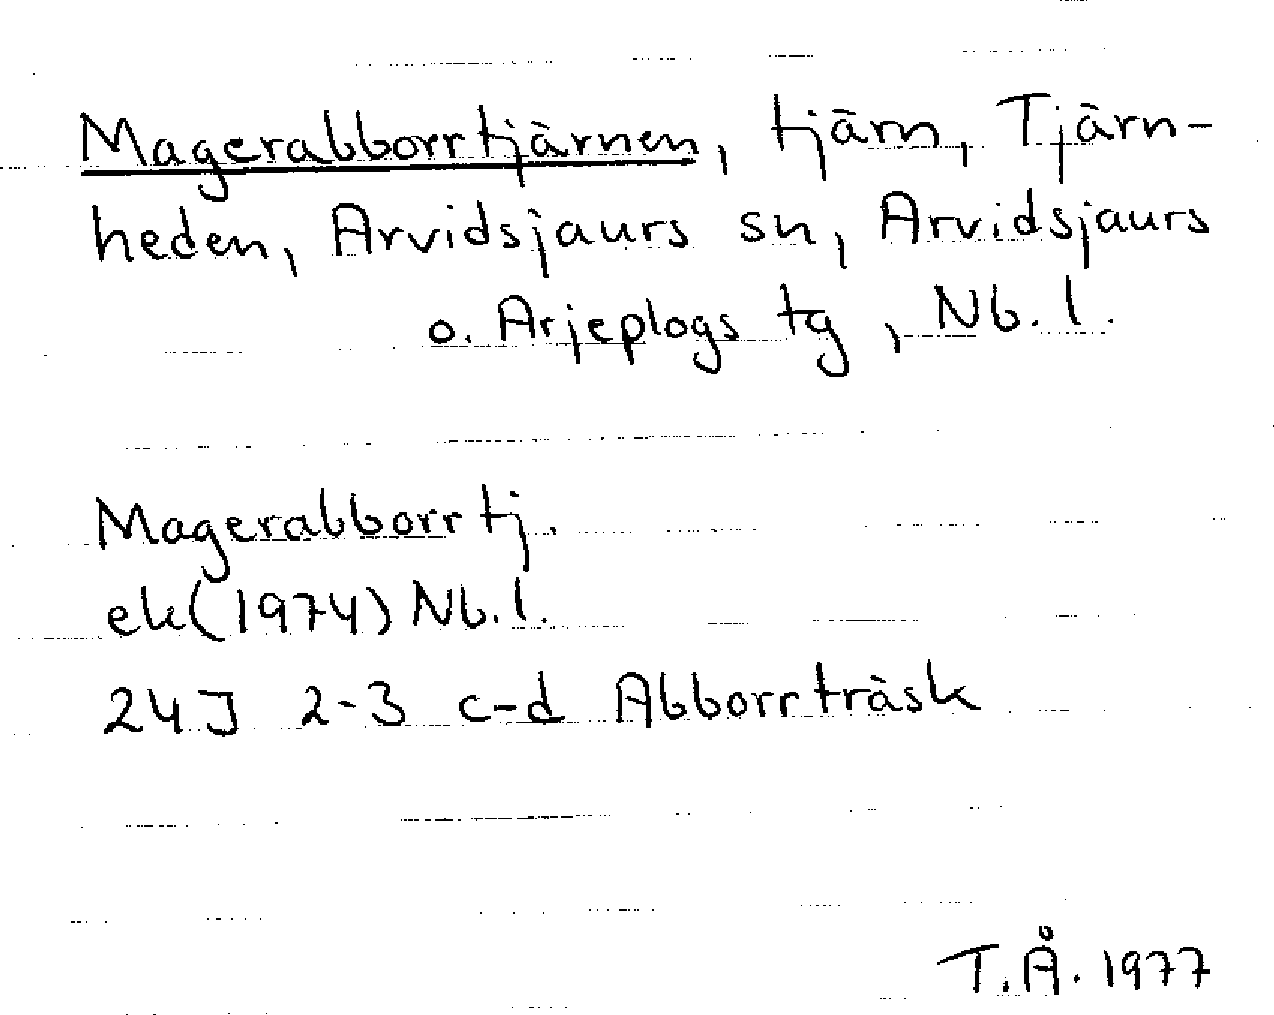 Magerabborrtjärnen, tjärn, Tjärn-
heden, Arvidsjaurs sn, Arvidsjaurs
o. Arjeplogs tg, Nb. l.
Magerabborrtj.
ek(1974) Nb. l.
24J 2-3 c-d Abborrträsk
T.Å. 1977